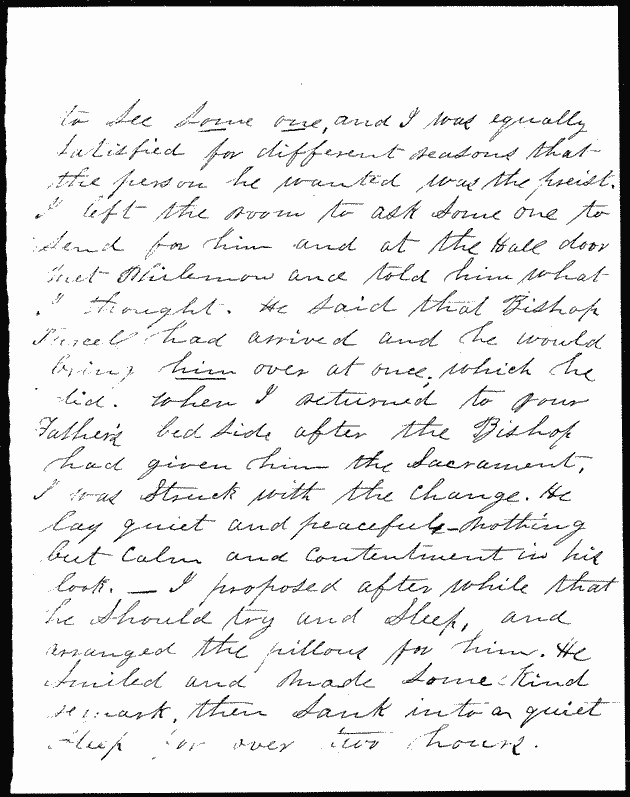 to see some one, and I was equally
satisfied for different reasons that
the person he wanted was the preist.
I left the room to ask some one to
send for him and at the Hall door
met Philemon and told him what
I thought. He said that Bishop
Purcell had arrived and he would
bring him over at once, which he
did. When I returned to your
Father's bed side after the Bishop
had given him the Sacrament,
I was struck with the change. He
lay quiet and peaceful - nothing
but calm and contentment in his
look. — I proposed after while that
he should try and sleep, and
arranged the pillows for him. He
smiled and made some kind
remark, then sank into a quiet
sleep for over two hours.